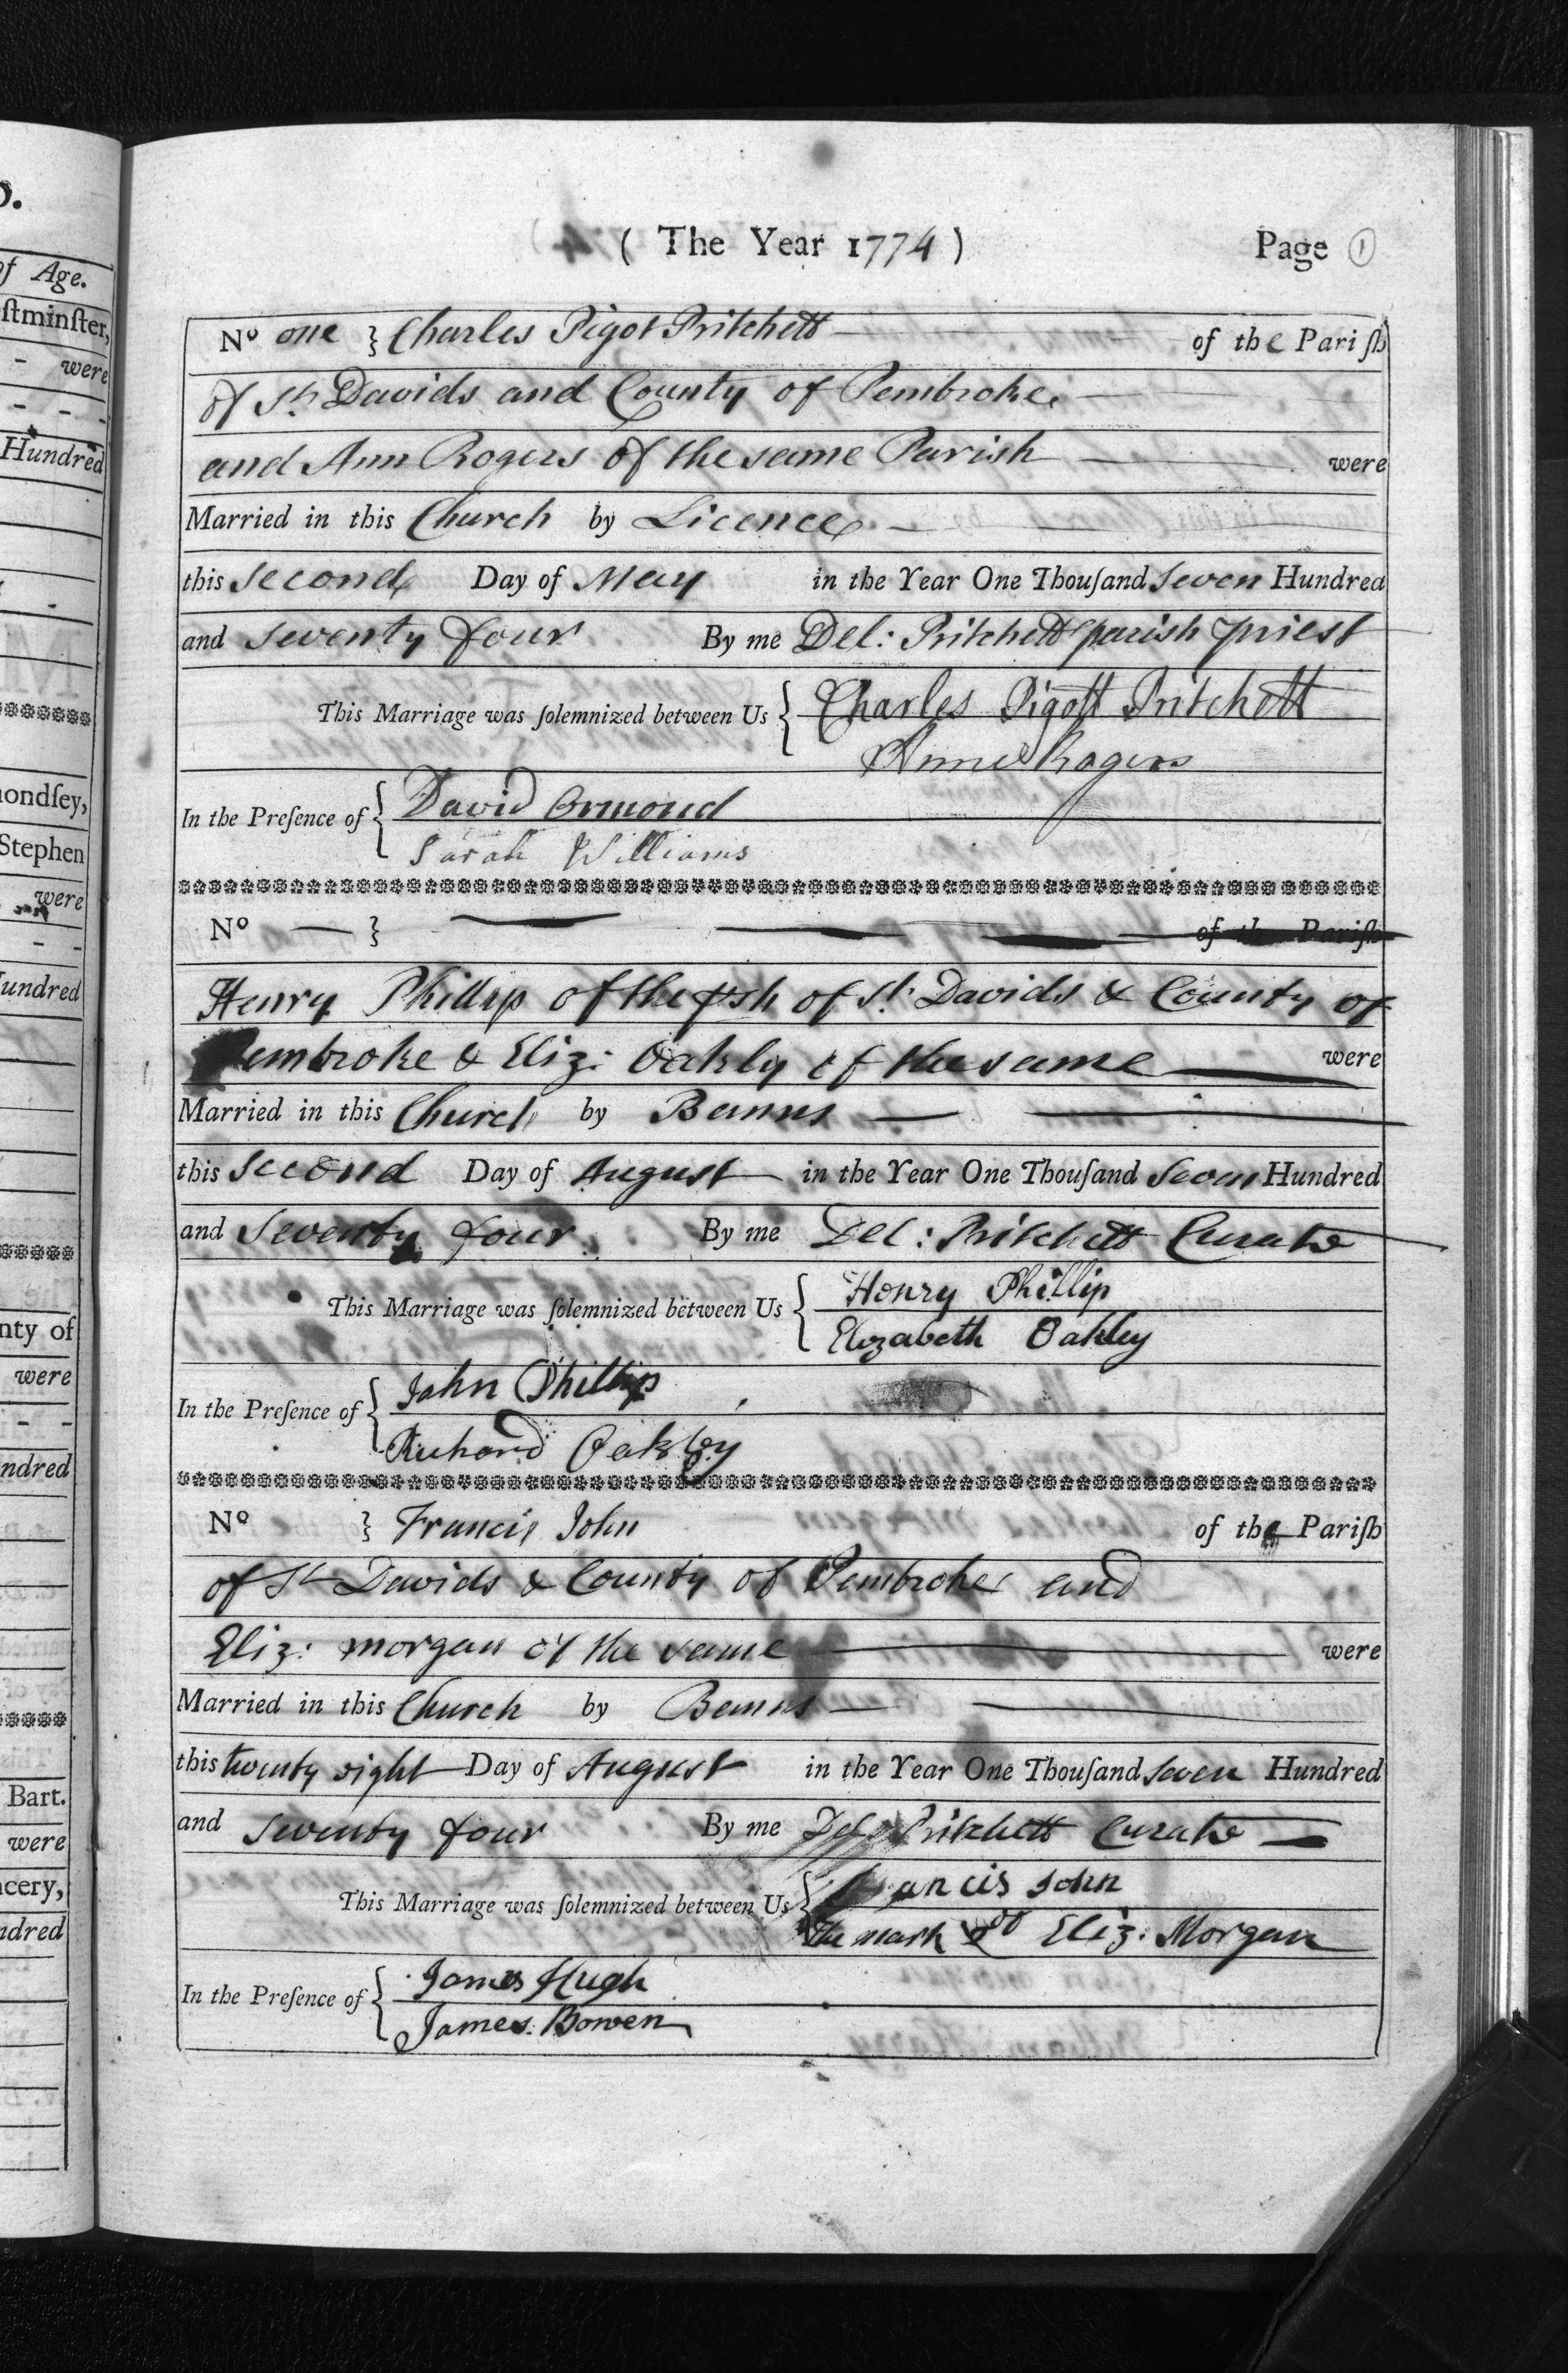 ( The Year 1774 ) Page 1
No one } Charles Pigot Pritchett of the Pariſh
of St Davids and County of Pembroke
and Ann Rogers of the same Parish were
Married in this Church by Licence
this second Day of May in the Year One Thouſand Seven Hundred
and seventy four By me Del: Pritchett parish priest
This Marriage was ſolemnized between Us { Charles Pigott Pritchett
Anne Rogers
In the Preſence of { David Ormond
Sarah Williams
No — } of the Pariſh
Henry Phillip of the psh of St. Davids & County of
Pembroke & Eliz: Oakly of the same were
Married in this Church by Banns
this second Day of August in the Year One Thouſand Seven Hundred
and Seventy four By me Del: Pritchett Curate
This Marriage was ſolemnized between Us { Henry Phillip
Elizabeth Oakley
In the Preſence of { John Phillips
Richard Oakley
No } Francis John of the Pariſh
of St Davids & County of Pembroke and
Eliz: morgan of the same were
Married in this Church by Banns
this twenty eight Day of August in the Year One Thouſand Seven Hundred
and Seventy four By me Del: Pritchett Curate
This Marriage was ſolemnized between Us { Francis John
The mark of Eliz: Morgan
In the Preſence of { James Hugh
James Bowen
of Age.
ſtminſter,
were
Hundred
mondſey,
Stephen
were
Hundred
nty of
were
ndred
Bart.
were
ncery,
ndred